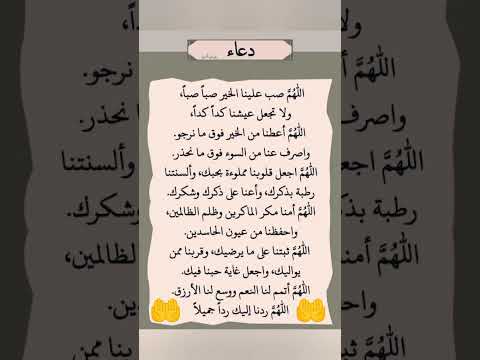 دعاء
اللهُمَّ صب علينا الخير صباً صباً،
ولا تجعل عيشنا كداً كداً،
اللهُمَّ أعطنا من الخير فوق ما نرجو.
واصرف عنا من السوء فوق ما نحذر.
اللهُمَّ اجعل قلوبنا مملوءة بحبك، وألسنتنا
رطبة بذكرك، وأعنا على ذكرك وشكرك.
اللهُمَّ أمنا مكر الماكرين وظلم الظالمين،
واحفظنا من عيون الحاسدين.
اللهُمَّ ثبتنا على ما يرضيك، وقربنا ممن
يواليك، واجعل غاية حبنا فيك.
اللهُمَّ أتمم لنا النعم ووسع لنا الأرزق.
اللهُمَّ ردنا إليك رداً جميلاً